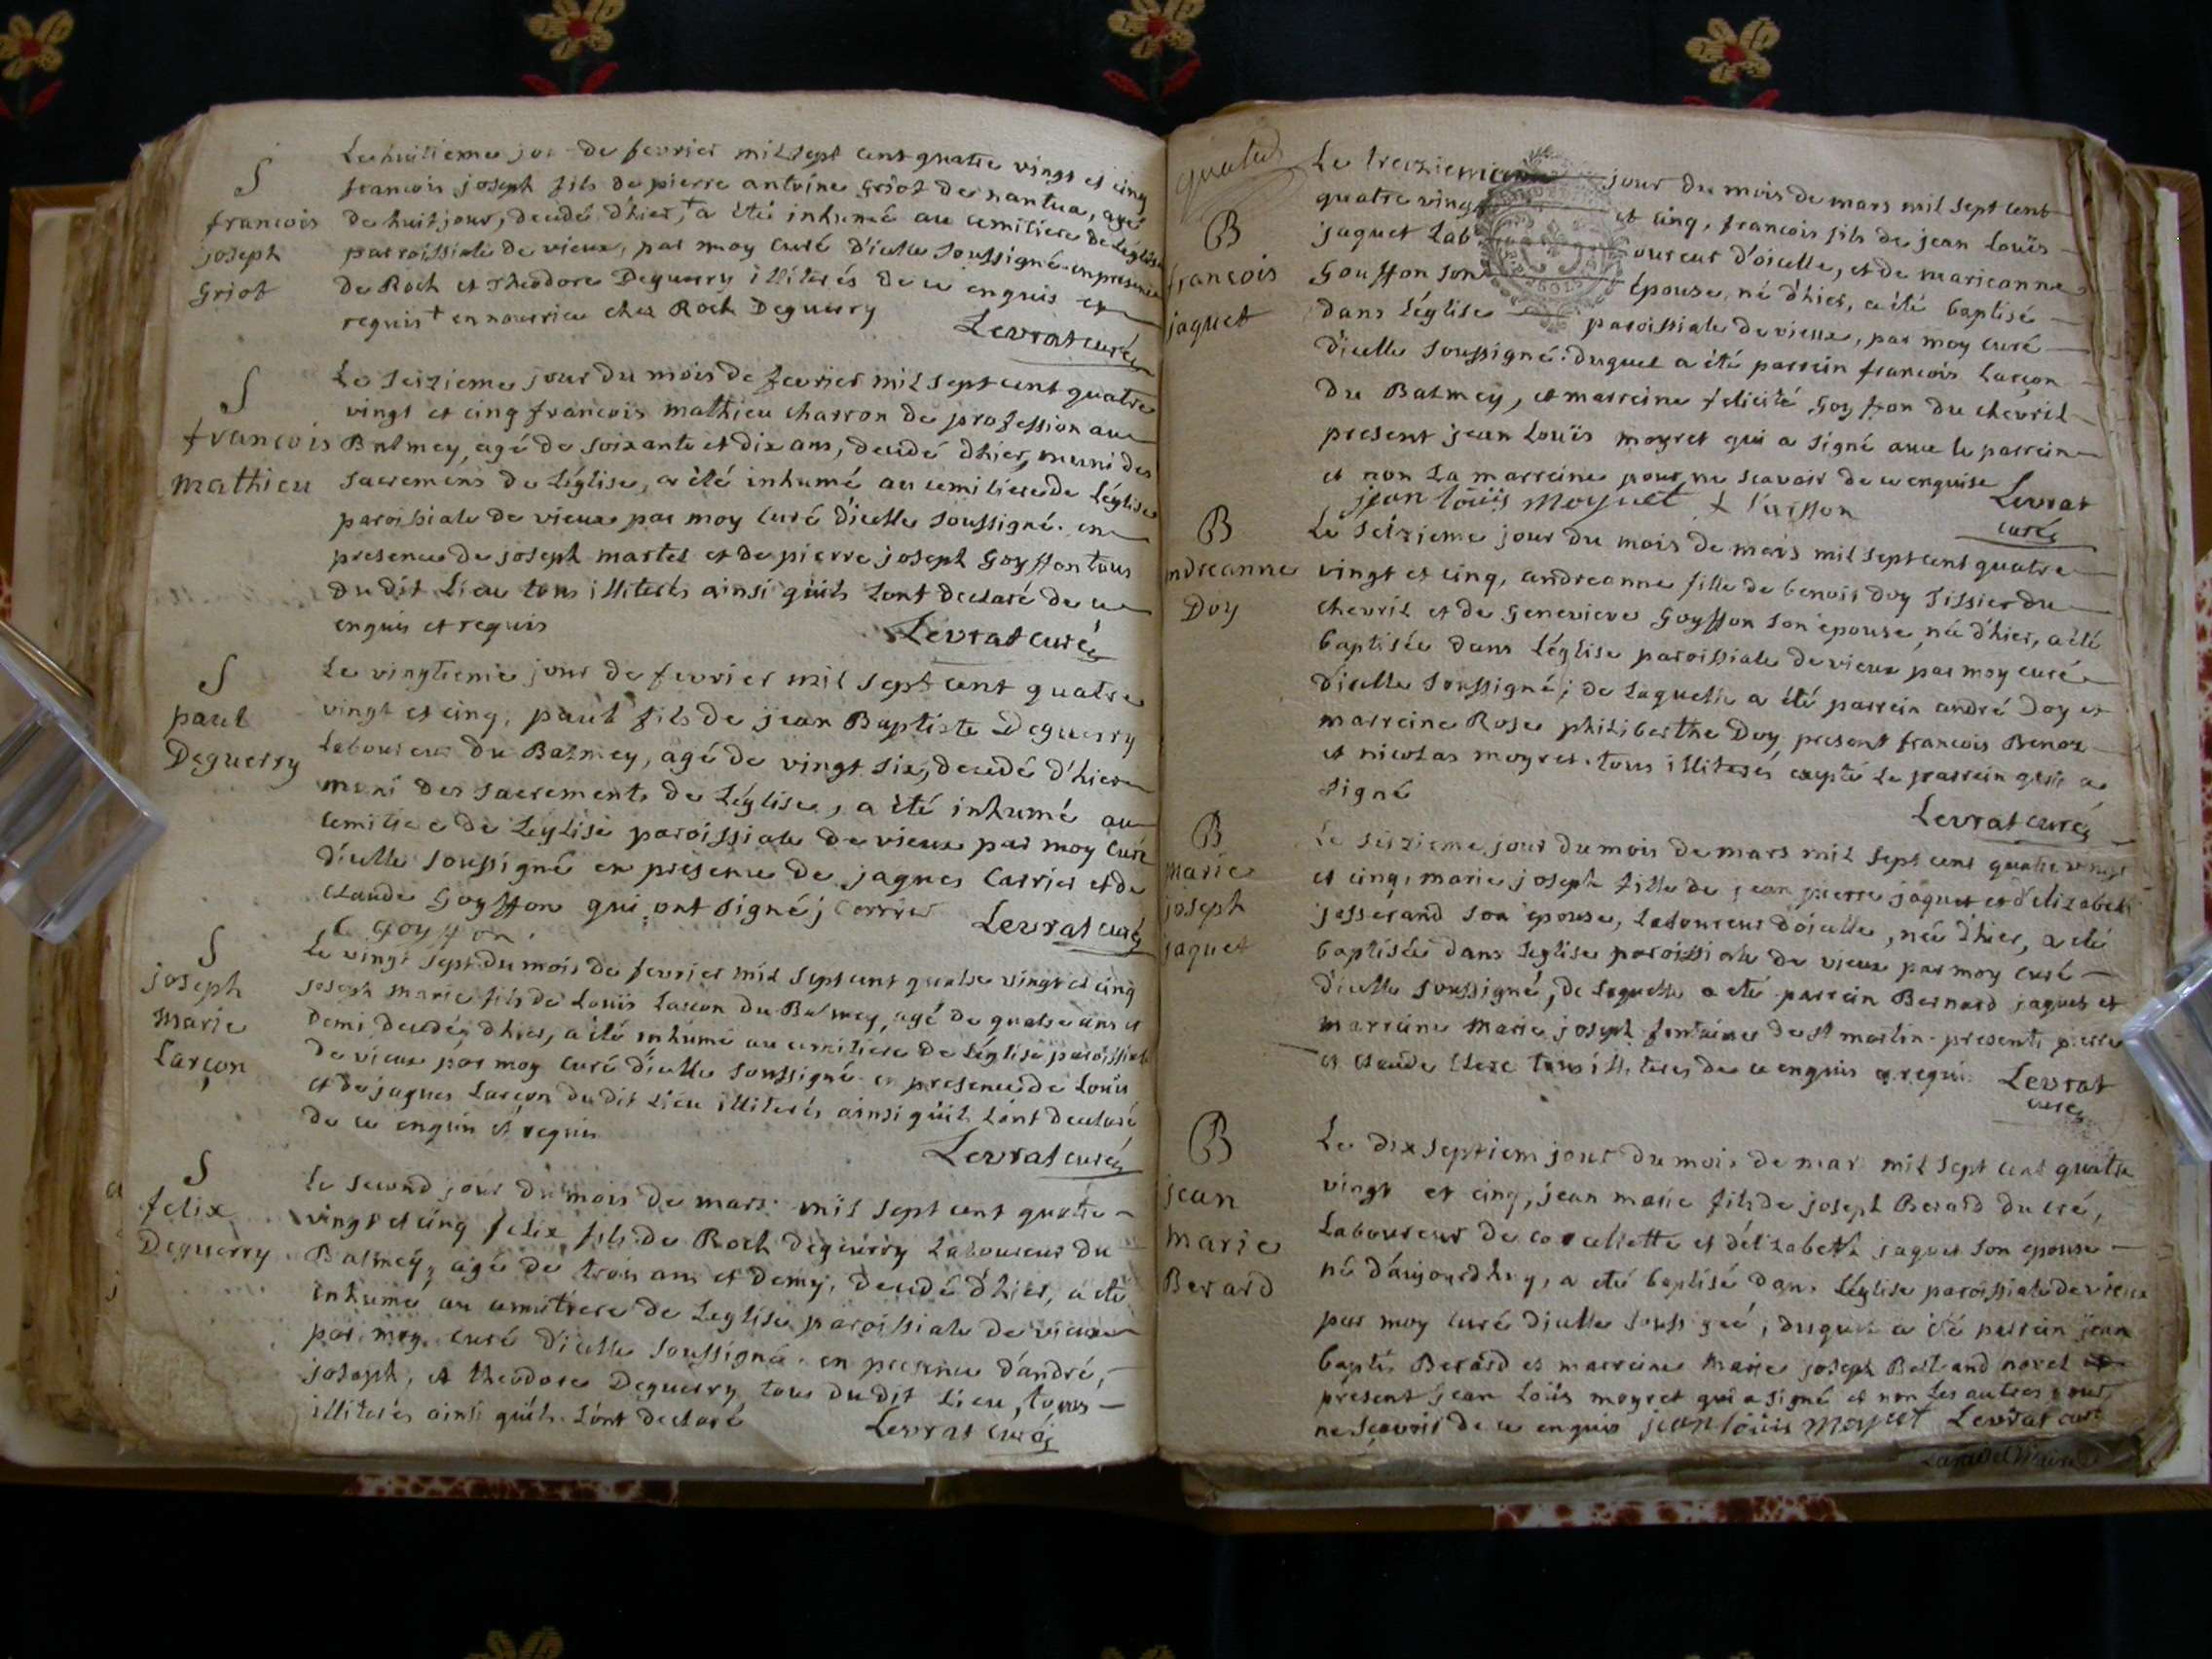 S
francois
joseph
Griot
Le huitieme jour de fevrier mil sept cent quatre vingt et cinq
francois joseph fils de pierre antoine Griot de nantua, agé
de huit jour, decedé d'hier,+ a été inhumé au cemitiere de Léglise
paroissiale de vieux, par moy Curé d'icelle soussigné en presence
de Roch et Theodore Deguerry illiterés de ce enquis et
requis + en nourrice chez Roch Deguerry
Levrat curé
S
francois
mathieu
Le seizieme jour du mois de fevrier mil sept cent quatre
vingt et cinq francois mathieu charron de profession au
Balmey, agé de soixante et dix ans, decedé dhier, muni des
sacremens de Léglise, a été inhumé au cemitiere de Léglise
paroissiale de vieux par moy Curé d'icelle soussigné en
presence de joseph martel et de pierre joseph Goyffon tous
du dit Lieu tous illiterés ainsi quils Lont declaré de ce
enquis et requis
Levrat curé
S
paul
Deguerry
Le vingtieme jour de fevrier mil sept cent quatre
vingt et cinq, paul fils de jean Baptiste Deguerry
Laboureur du Balmey, agé de vingt six, decedé d'hier
muni des sacrements de Léglise, a été inhumé au
cemitiere de Léglise paroissiale de vieux par moy Curé
d'icelle soussigné en presence de jaques Carrier et de
claude Goyffon qui ont signé j Carrier
C goyffon
Levrat curé
S
joseph
marie
Larçon
Le vingt sept du mois de fevrier mil sept cent quatre vingt et cinq
joseph marie fils de Louis Larcon du Balmey, agé de quatre ans et
demi decedé dhier, a été inhumé au cemitiere de Léglise paroissiale
de vieux par moy Curé d'icelle soussigné en presence de Louis
et de jaques Larçon du dit Lieu illiterés ainsi quils Lont declaré
de ce enquis et requis
Levrat curé
S
felix
Deguerry
Le second jour du mois de mars mil sept cent quatre
vingt et cinq felix fils de Roch deguerry Laboureur du
Balmey, agé de trois ans et demy, decedé d'hier, a été
inhumé au cemitiere de Leglise paroissiale de vieux
par moy curé d'icelle soussigné en presence d'andré,
joseph, et theodore Deguerry tous du dit Lieu, tous
illiterés ainsi quils Lont declaré
Levrat curé
B
francois
jaquet
Le treizieme jour du mois de mars mil sept cent
quatre vingt et cinq, francois fils de jean Louis
jaquet Laboureur d'oicelle, et de marieanne
Gouffon son épouse, né d'hier, a été baptisé
dans Léglise paroissiale de vieux, par moy curé
d'icelle soussigné. duquel a été parrein francois Larçon
du Balmey, et marreine felicité Goyffon du chevril
present jean Louis moyret qui a signé avec le parrein
et non La marreine pour ne scavoir de ce enquise
jean louis Moyret
Levrat
curé
B
andreanne
Doy
Le seizieme jour du mois de mars mil sept cent quatre
vingt et cinq, andreanne fille de benoit doy Tissier du
chevril et de Genevieve Goyffon son épouse, née d'hier, a été
baptisée dans Léglise paroissiale de vieux par moy curé
d'icelle soussigné; de Laquelle a été parrein andré Doy et
marreine Rose philiberthe Doy, present francois Benoz
et nicolas moyret. tous illiterés exepté Le parrein qui a
signé
Levrat curé
B
marie
joseph
jaquet
Le seizieme jour du mois de mars mil sept cent quatre vingt
et cinq, marie joseph fille de jean pierre jaquet et d'elizabeth
josserand son epouse, Laboureur d'oicelle, née d'hier, a été
baptisée dans Leglise paroissiale de vieux par moy curé
d'icelle soussigné, de Laquelle a été parrein Bernard jaquet et
marreine marie joseph fontaines de st martin. presents pierre
et claude Clerc tous illiteres de ce enquis et requis
Levrat
curé
B
jean
marie
Berard
Le dix septiem jour du mois de mars mil sept cent quatre
vingt et cinq, jean marie fils de joseph Berard du cré,
Laboureur de corcellette et d'élizabeth jaquet son epouse
né d'aujourdhuy, a été baptisé dans Léglise paroissiale de vieux
par moy curé d'icelle soussigné, duquel a été parrein jean
baptis Berard et marreine marie joseph Bertrand novel
present jean Loüis moyret qui a signé et non Les autres pour
ne sçavoir de ce enquis jean louis Moyret Levrat curé